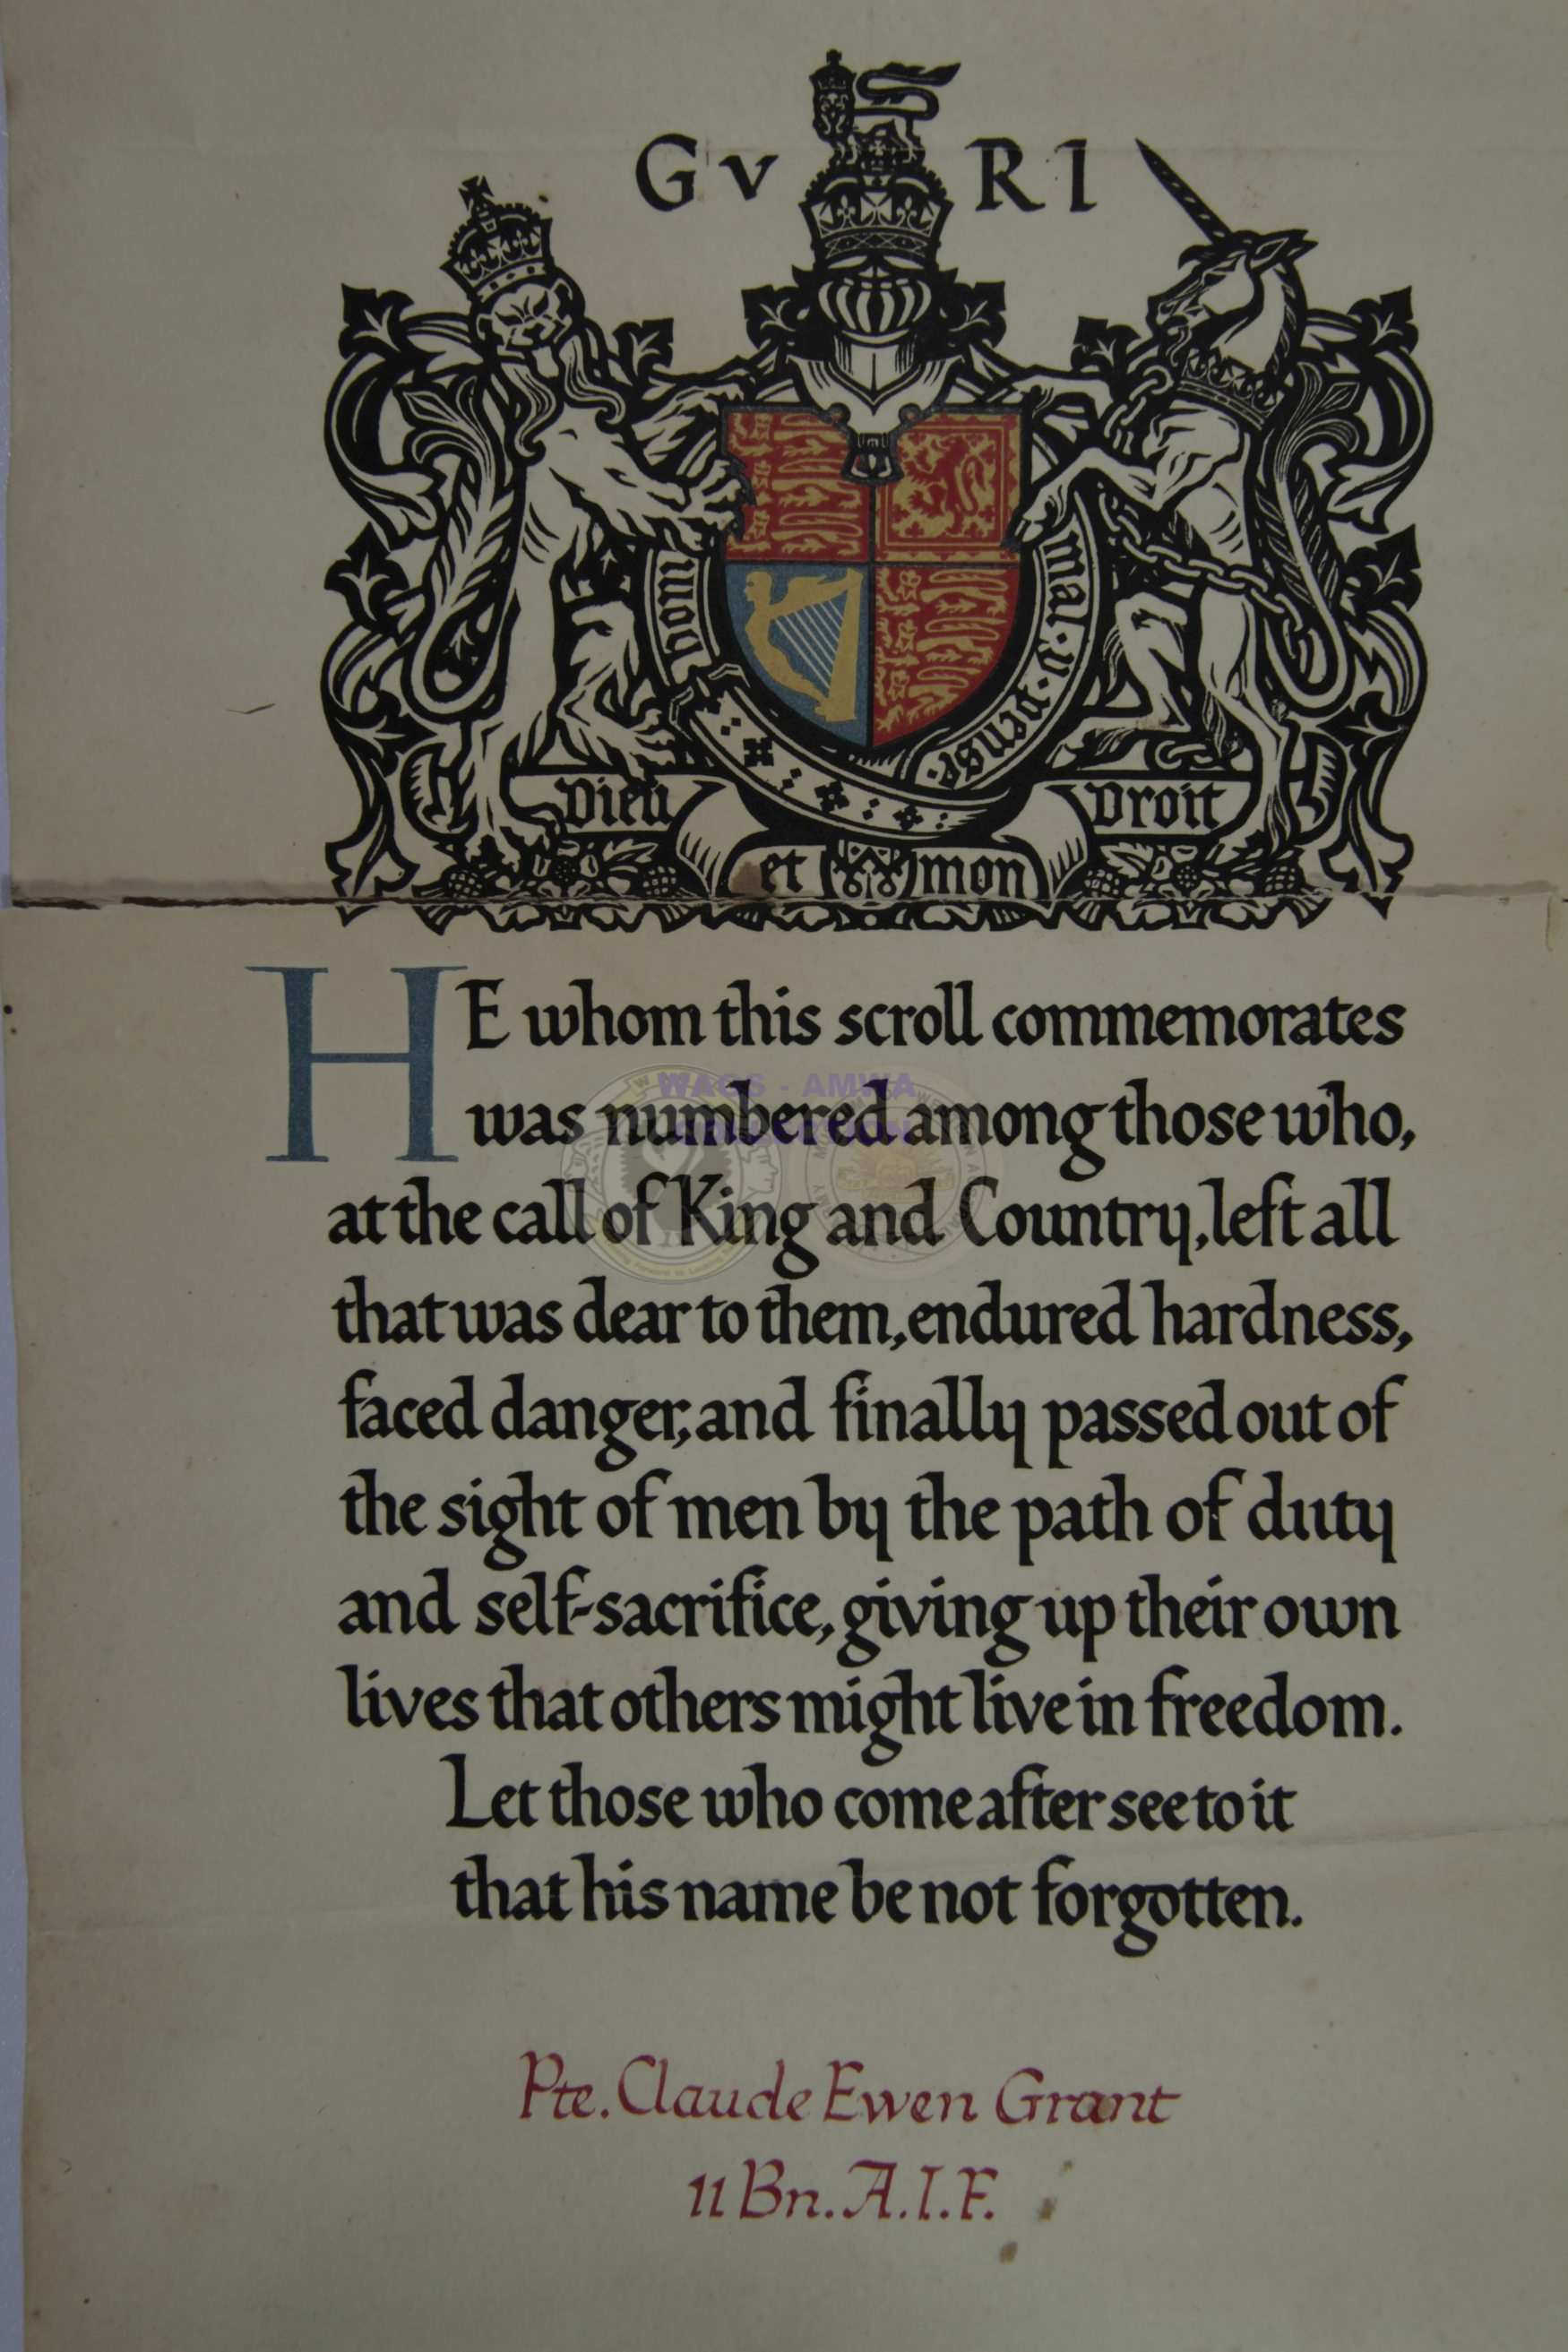 GV RI
honi
mal·y·pense·
Dieu
Droit
et mon
HE whom this scroll commemorates
WAGS - AMWA
COLLECTION
was numbered among those who,
at the call of King and Country, left all
that was dear to them, endured hardness,
faced danger, and finally passed out of
the sight of men by the path of duty
and self-sacrifice, giving up their own
lives that others might live in freedom.
Let those who come after see to it
that his name be not forgotten.
Pte. Claude Ewen Grant
11 Bn. A.I.F.